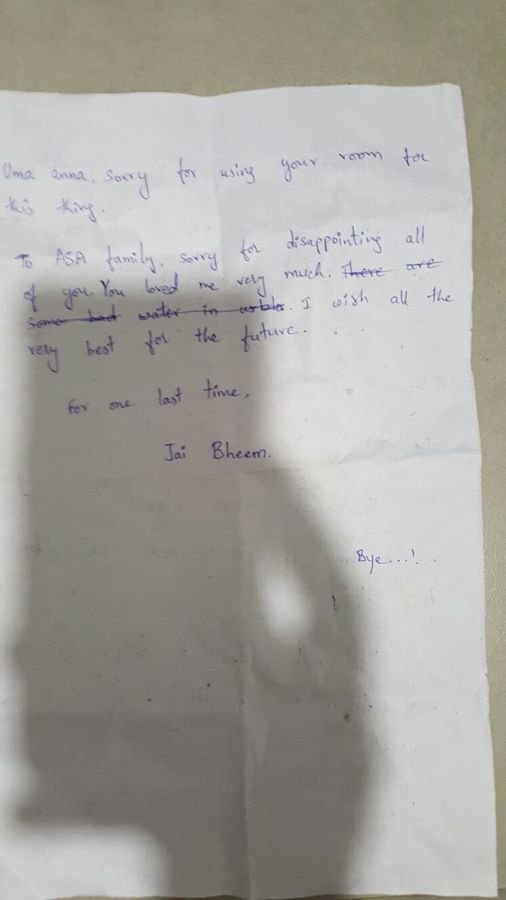 Uma anna, sorry for using your room for
this thing.
To ASA family, sorry for disappointing all
of you. You loved me very much. There are
some bad water in. I wish all the
very best for the future. . .
For one last time,
Jai Bheem.
Bye...!